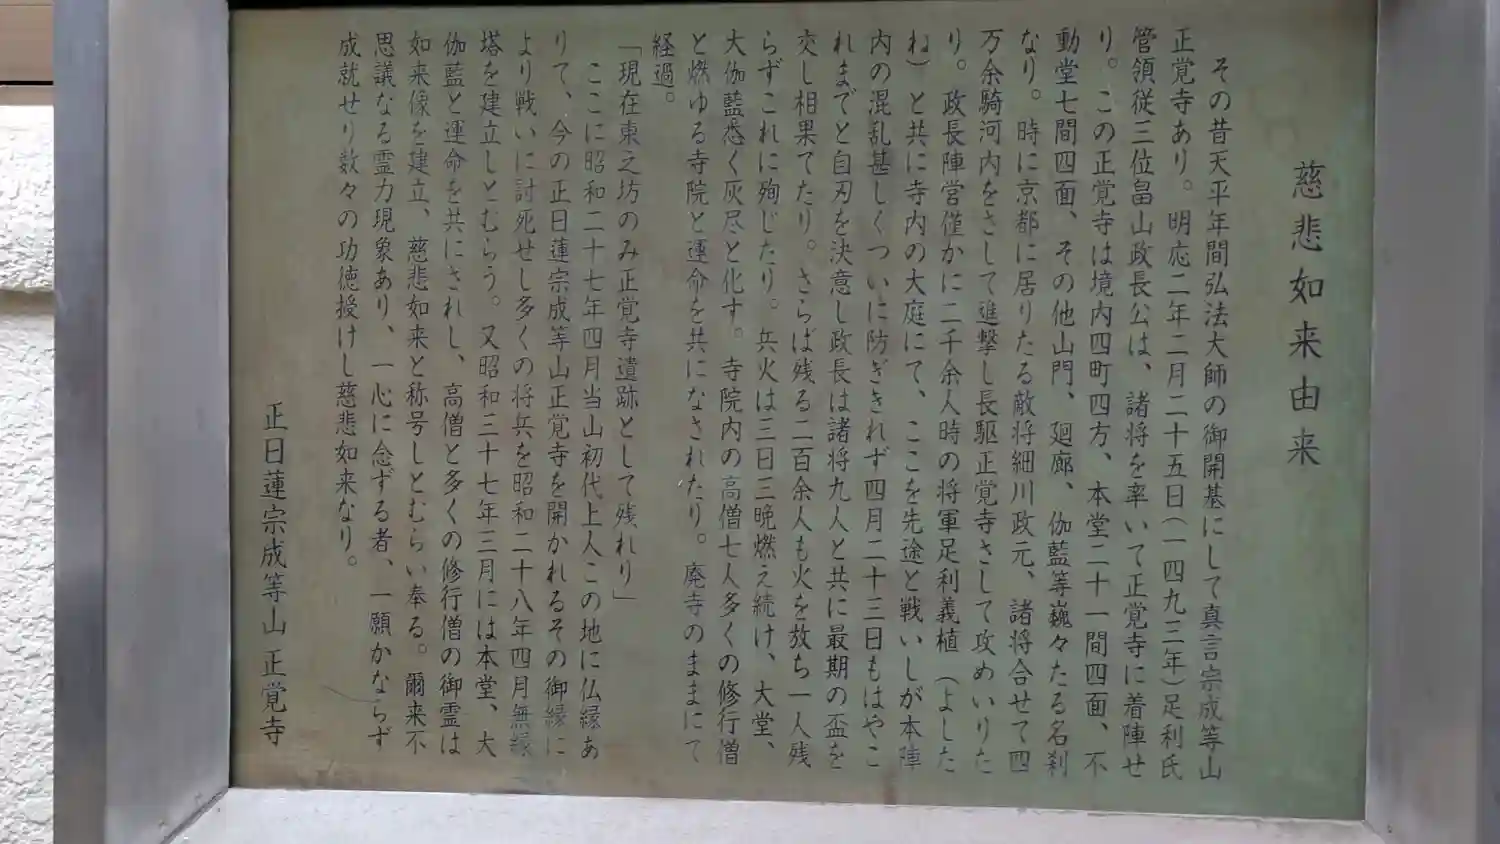 慈悲如来由来
その昔天平年間弘法大師の御開基にして真言宗成等山
正覚寺あり。明応二年二月二十五日(一四九三年)足利氏
管領従三位畠山政長公は、諸将を率いて正覚寺に着陣せ
り。この正覚寺は境内四町四方、本堂二十一間四面、不
動堂七間四面、その他山門、廻廊、伽藍等巍々たる名刹
なり。時に京都に居りたる敵将細川政元、諸将合せて四
万余騎河内をさして進撃し長駆正覚寺さして攻めいりた
り。政長陣営僅かに二千余人時の将軍足利義植(よした
ね)と共に寺内の大庭にて、ここを先途と戦いしが本陣
内の混乱甚しくついに防ぎきれず四月二十三日もはやこ
れまでと自刃を決意し政長は諸将九人と共に最期の盃を
交し相果てたり。さらば残る二百余人も火を放ち一人残
らずこれに殉じたり。兵火は三日三晩燃え続け、大堂、
大伽藍悉く灰尽と化す。寺院内の高僧七人多くの修行僧
と燃ゆる寺院と運命を共になされたり。廃寺のままにて
経過。
「現在東之坊のみ正覚寺遺跡として残れり」
ここに昭和二十七年四月当山初代上人この地に仏縁あ
りて、今の正日蓮宗成等山正覚寺を開かれるその御縁に
より戦いに討死せし多くの将兵を昭和二十八年四月無縁
塔を建立しとむらう。又昭和三十七年三月には本堂、大
伽藍と運命を共にされし、高僧と多くの修行僧の御霊は
如来像を建立、慈悲如来と称号しとむらい奉る。爾来不
思議なる霊力現象あり、一心に念ずる者、一願かならず
成就せり数々の功徳授けし慈悲如来なり。
正日蓮宗成等山 正覚寺